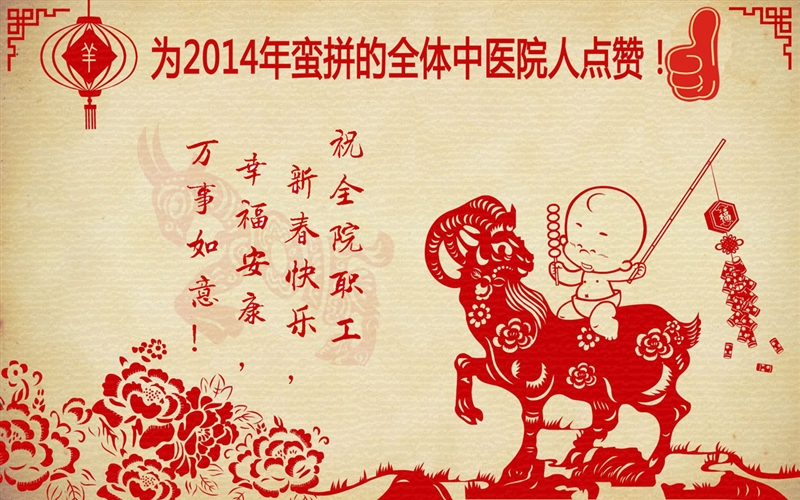 羊
为2014年蛮拼的全体中医院人点赞！
祝全院职工
新春快乐，
幸福安康，
万事如意！
福